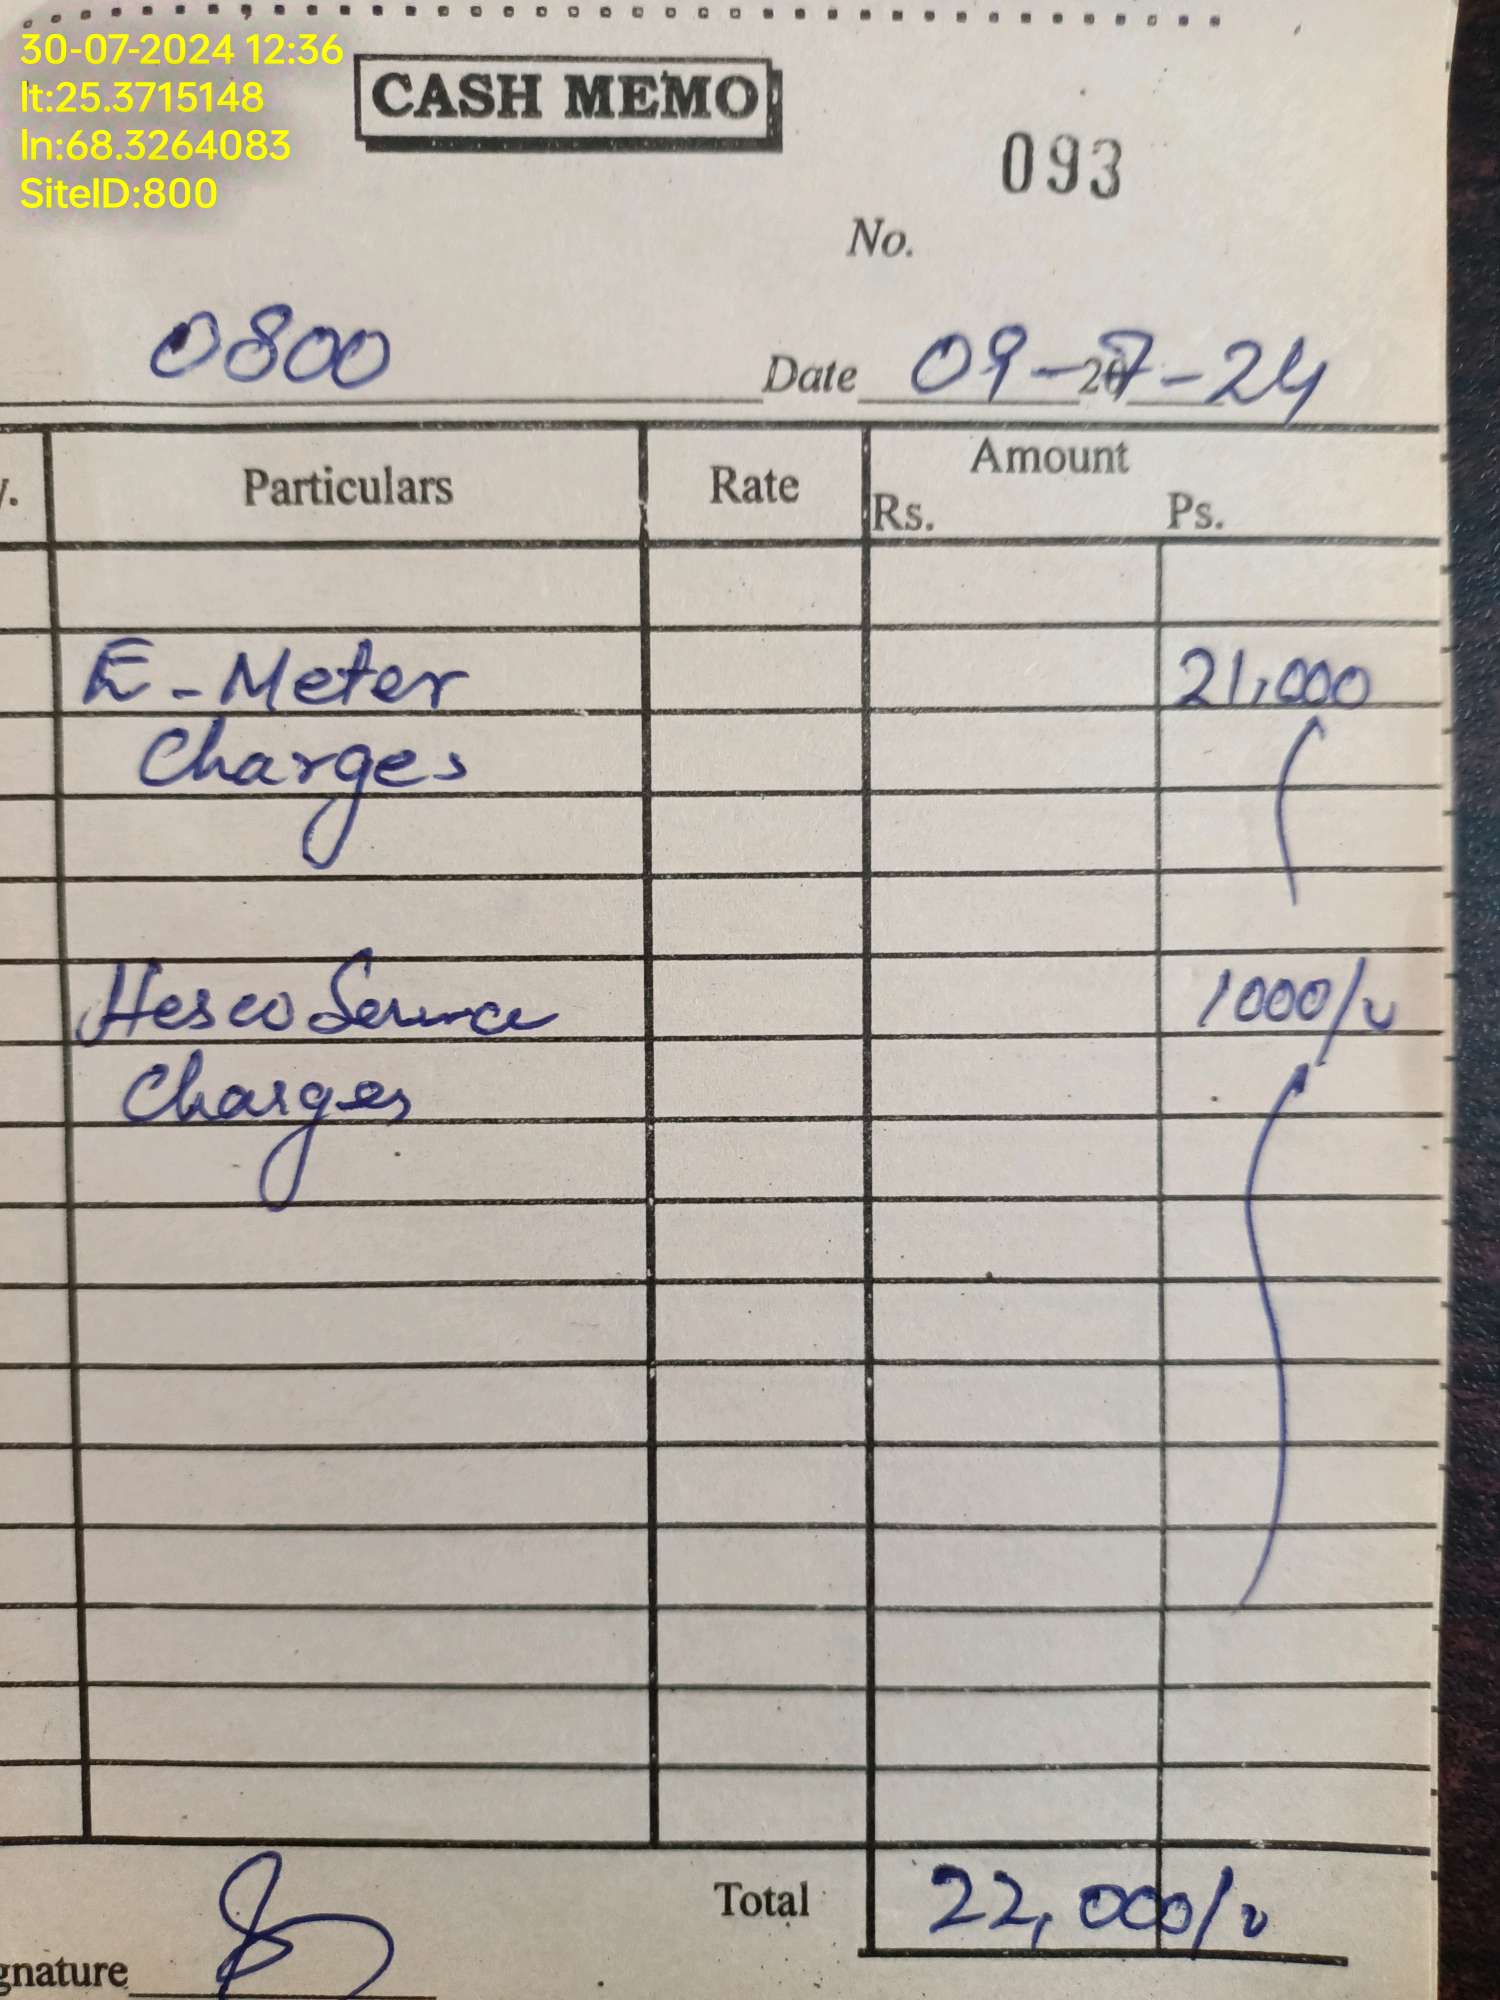 30-07-2024 12:36
lt:25.3715148
ln:68.3264083
SiteID:800
CASH MEMO
093
No.
0800 Date 09-7-24
y. Particulars Rate Amount
Rs. Ps.
E-Meter 21,000
Charges
Hesco Service 1000/-
Charges
Total 22,000/-
gnature